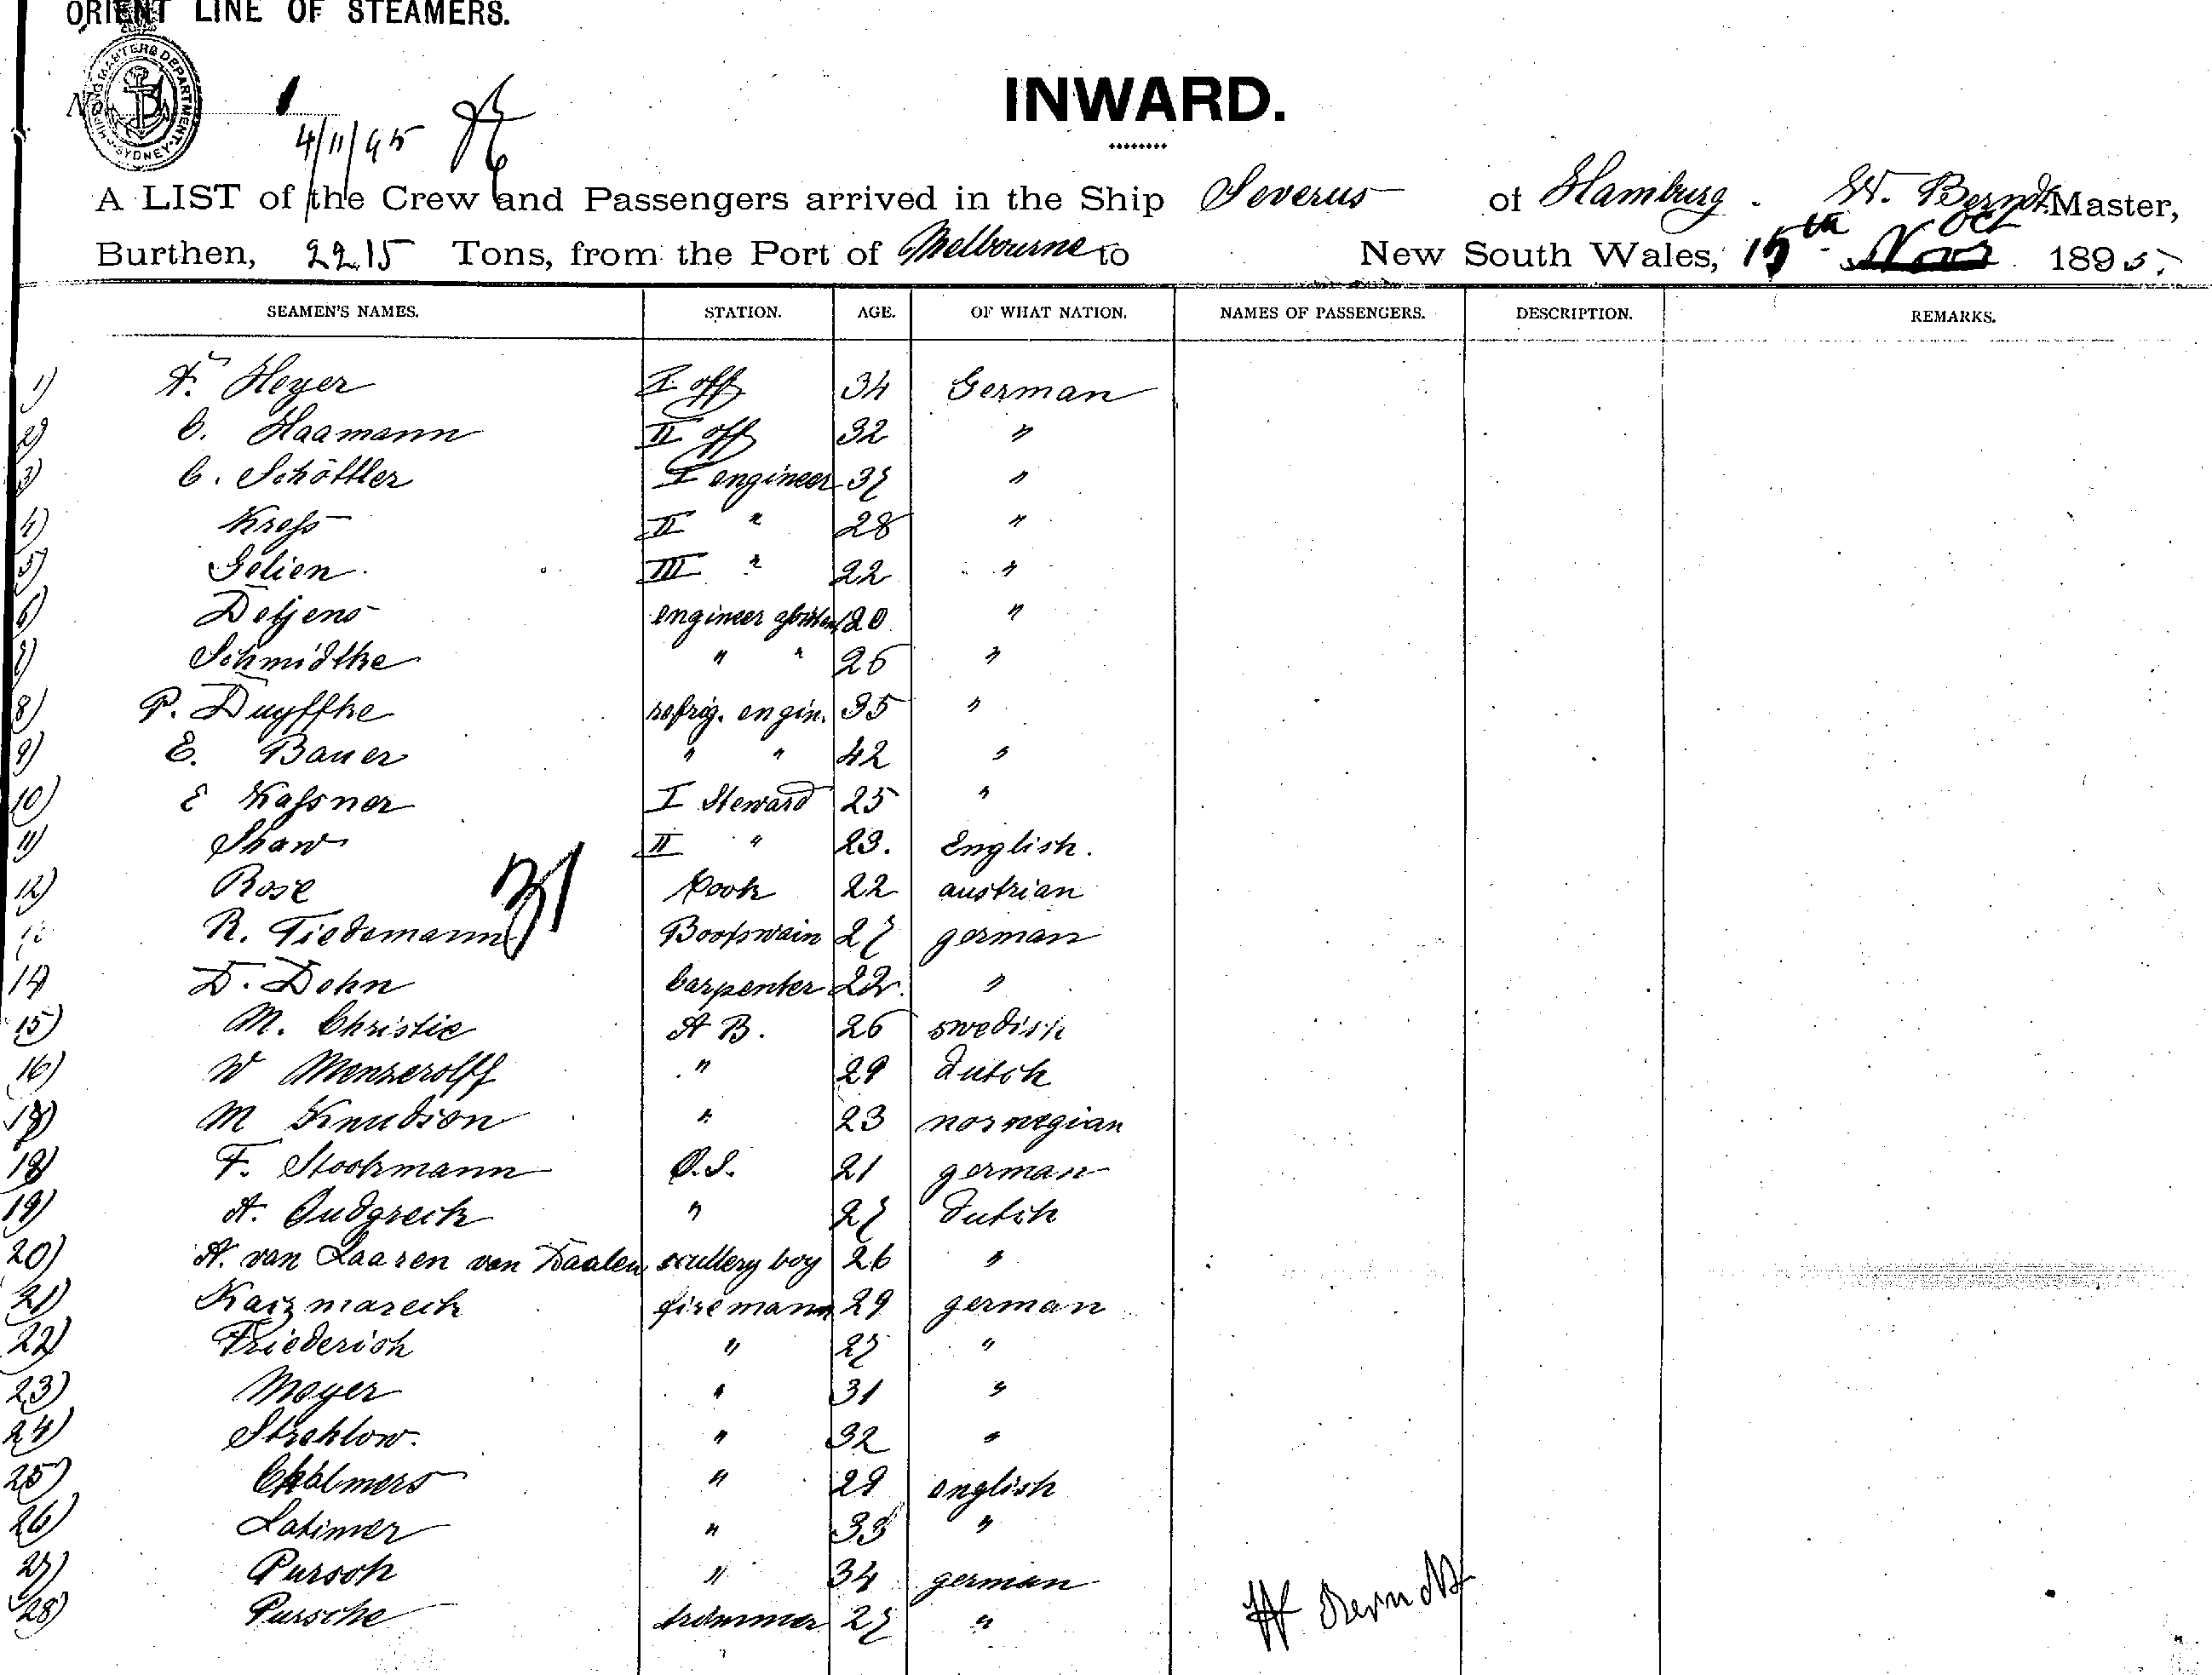 ORIENT LINE OF STEAMERS.
SHIPPING MASTERS DEPARTMENT. SYDNEY
No. 1
4/11/95
INWARD.
A LIST of the Crew and Passengers arrived in the Ship Severus of Hamburg. W. Berndt Master,
Burthen, 2215 Tons, from the Port of Melbourne to New South Wales, 15th Oct 1895.
SEAMEN'S NAMES. STATION. AGE. OF WHAT NATION. NAMES OF PASSENGERS. DESCRIPTION. REMARKS.
1) A. Heyer I. off 34 German
2) C. Haamann II off 32 "
3) C. Schöttler I engineer 37 "
4) Kress II " 28 "
5) Gelien III " 22 "
6) Detjens engineer 20 "
7) Schmidtke " " 26 "
8) P. Duyffke refrig. engin. 35 "
9) E. Bauer " " 42 "
10) E Kassner I Steward 25 "
11) Shaw II " 23. English.
12) Rose Cook 22 austrian
13 R. Tiedemann Bootswain 27 german
14) D. Dehn Carpenter 22. "
15) M. Christie A B. 26 swedish
16) W Menzerolff " 29 dutch
17) M Knudson " 23 norwegian
18) F. Stockmann O.S. 21 german
19) A. Oudgreck " 27 dutch
20) A. van Laaren van Daalen scullery boy 26 "
21) Kaizmareck firemann 29 german
22) Friederich " 27 "
23) Meyer " 31 "
24) Strehlow. " 32 "
25) Chalmers " 29 english
26) Latimer " 33 "
27) Pursch " 34 german
28) Pursche trimmer 27 "
W Berndt